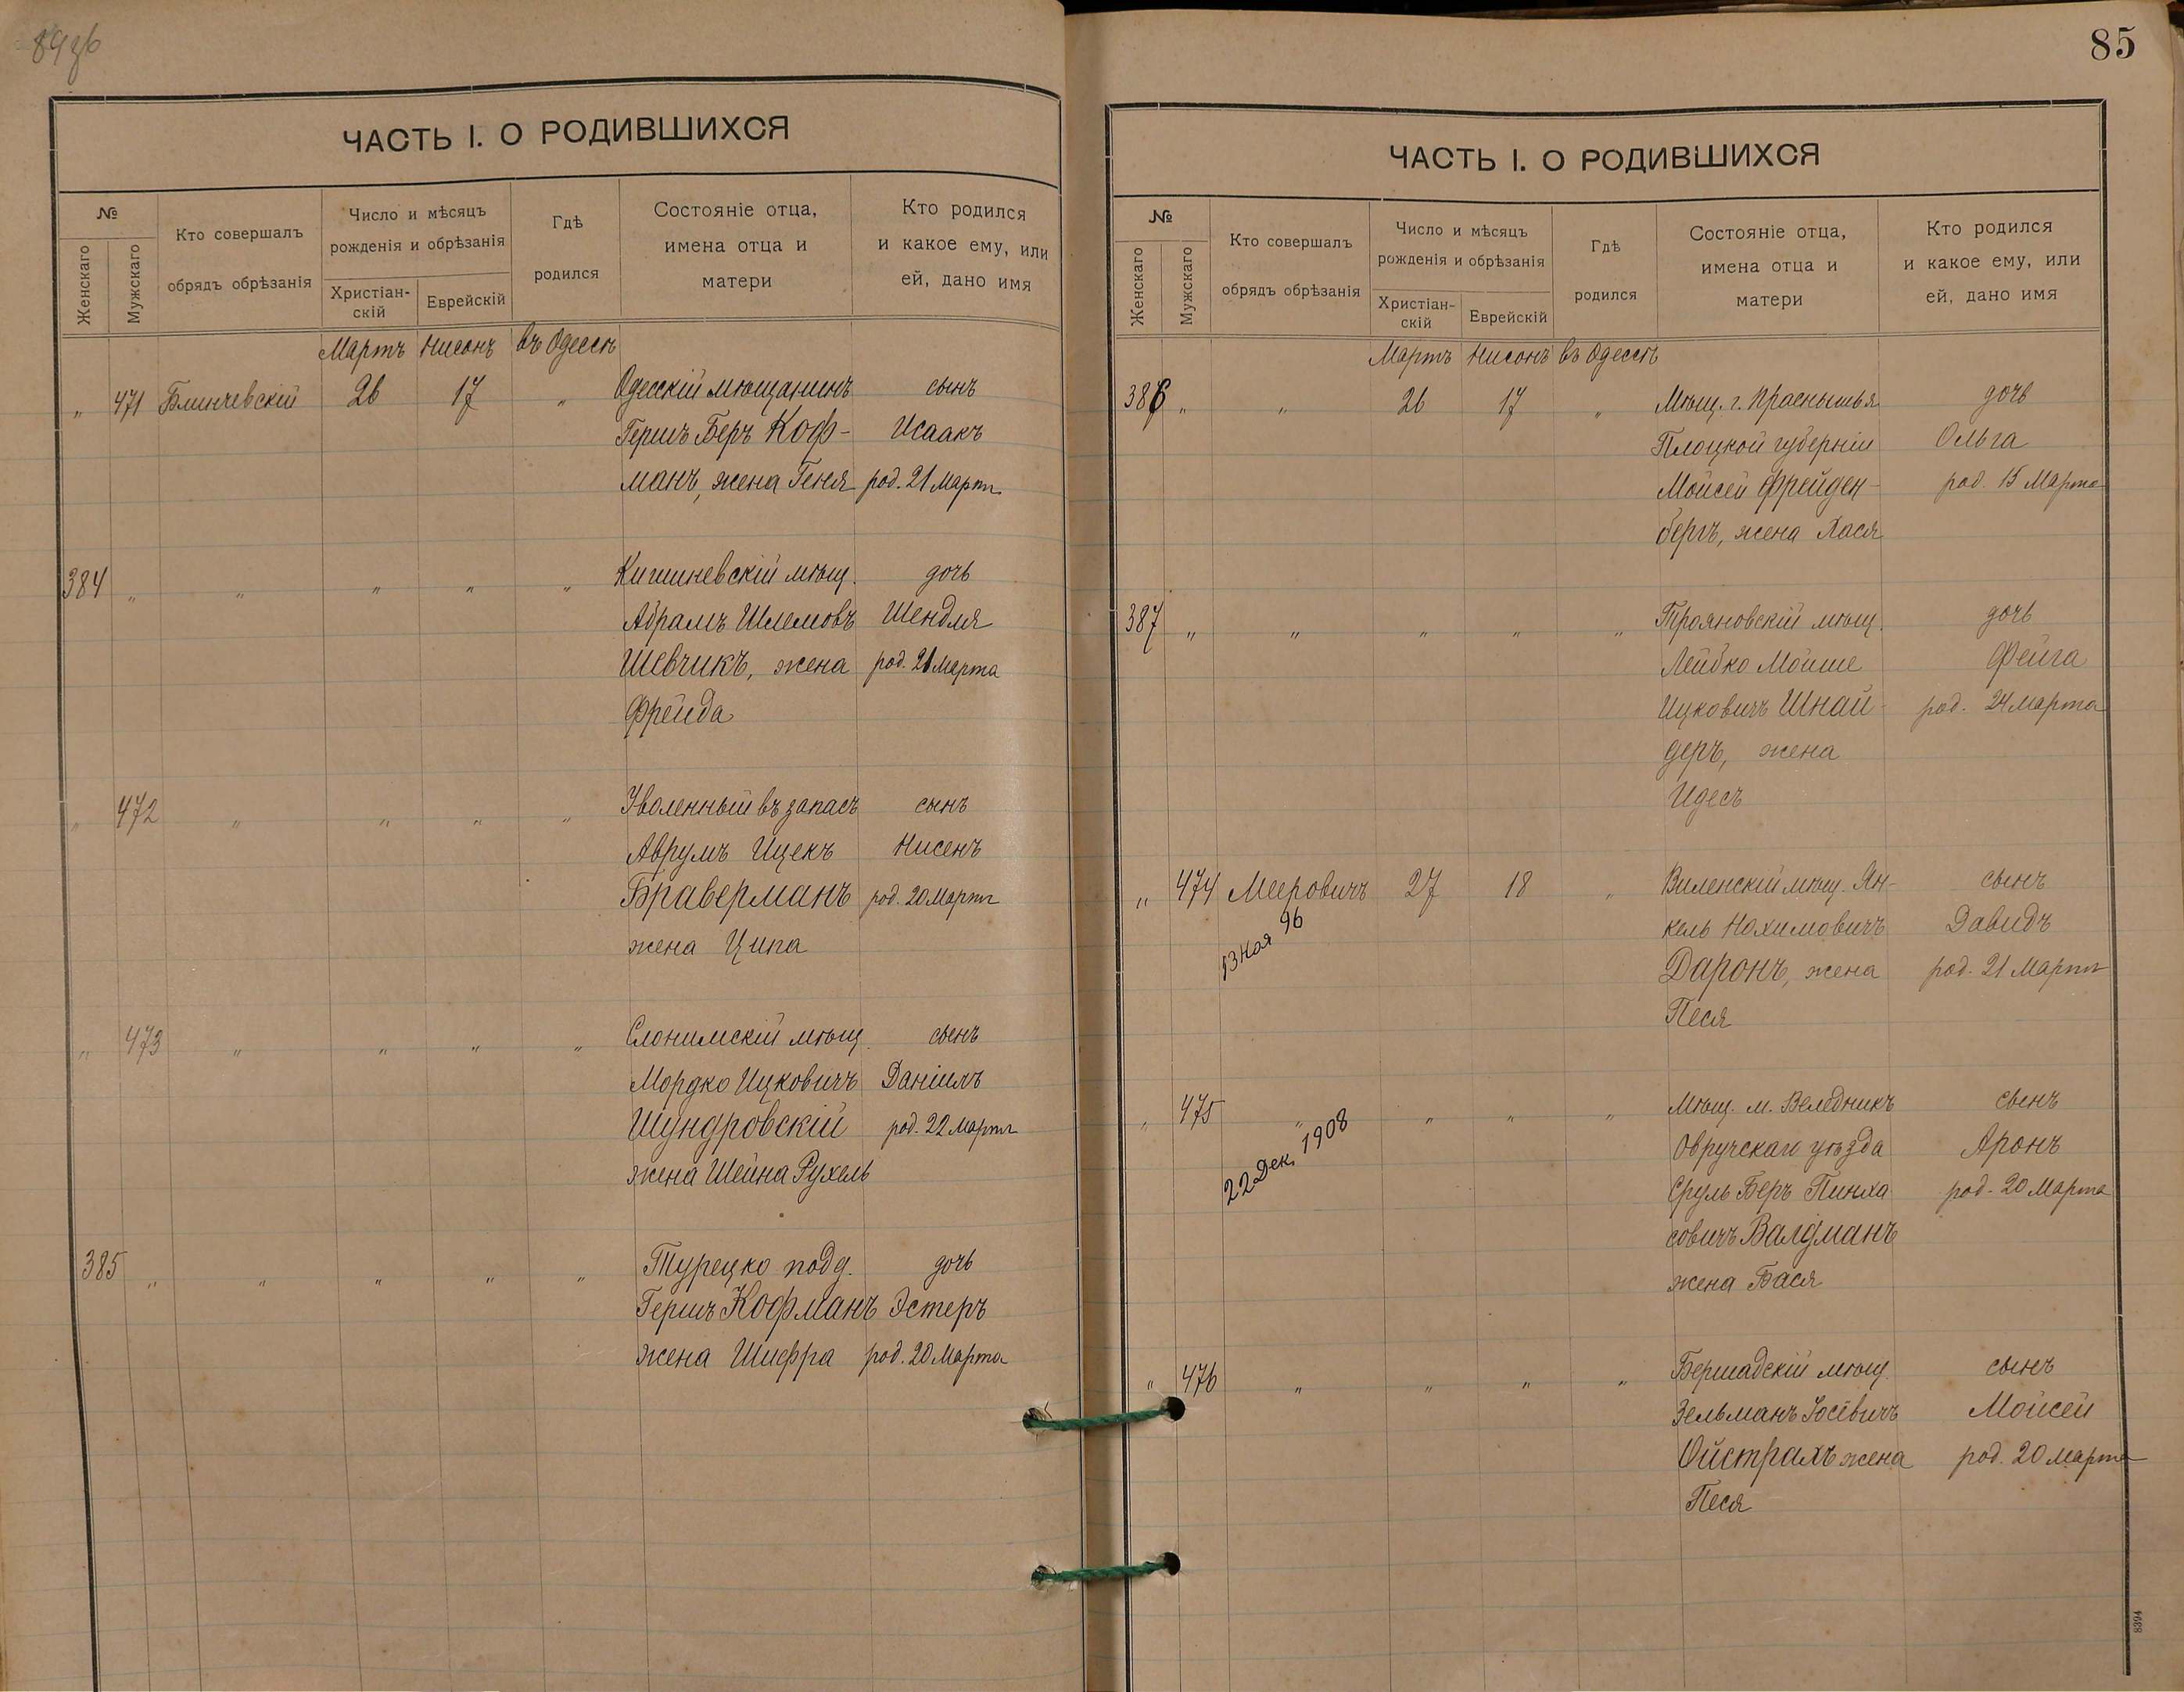 ЧАСТЬ I. О РОДИВШИХСЯ
№
Женскаго
Мужскаго
Кто совершалъ
обрядъ обрѣзанія
Число и мѣсяцъ
рожденія и обрѣзанія
Христіан-
скій
Еврейскій
Гдѣ
родился
Состояніе отца,
имена отца и
матери
Кто родился
и какое ему, или
ей, дано имя
Мартъ Нисонъ въ Одессѣ
„ 471 Блинчевскій 26 17 „ Одесскій мѣщанинъ сынъ
Гершъ Беръ Коф- Исаакъ
манъ, жена Геня род. 21 Марта
384 „ „ „ „ „ Кишиневскій мѣщ. дочь
Абрамъ Шлемовъ Шендля
Шевчикъ, жена род. 21 Марта
Фрейда
„ 472 „ „ „ „ Уволенный въ запасъ сынъ
Аврумъ Ицекъ Нисенъ
Браверманъ род. 20 Марта
жена Ципа
„ 473 „ „ „ „ Слонимскій мѣщ. сынъ
Мордко Ицковичъ Даніилъ
Шундровскій род. 22 Марта
жена Шейна Рухель
385 „ „ „ „ „ Турецко подд. дочь
Гершъ Кофманъ Эстеръ
жена Шифра род. 20 Марта
85
ЧАСТЬ I. О РОДИВШИХСЯ
№
Женскаго
Мужскаго
Кто совершалъ
обрядъ обрѣзанія
Число и мѣсяцъ
рожденія и обрѣзанія
Христіан-
скій
Еврейскій
Гдѣ
родился
Состояніе отца,
имена отца и
матери
Кто родился
и какое ему, или
ей, дано имя
Мартъ Нисонъ въ Одессѣ
386 „ „ 26 17 „ Мѣщ. г. Праснышья дочь
Плоцкой губерніи Ольга
Мойсей Фрейден- род. 15 Марта
бергъ, жена Хася
387 „ „ „ „ „ Трояновскій мѣщ. дочь
Лейбко Мойше Фейга
Ицковичъ Шнай- род. 24 Марта
деръ, жена
Идесъ
„ 474 Мееровичъ 27 18 „ Виленскій мѣщ. Ян- сынъ
13 Ноя 96
кель Нохимовичъ Давидъ
Даронъ, жена род. 21 Марта
Песя
„ 475 „ „ „ „ Мѣщ. м. Веледникъ сынъ
22 Дек. 1908
Овручскаго уѣзда Аронъ
Сруль Беръ Пинха род. 20 Марта
совичъ Валдманъ
жена Бася
„ 476 „ „ „ „ Бершадскій мѣщ. сынъ
Зельманъ Іосевичъ Мойсей
Ойстрахъ жена род. 20 Марта
Песя
8394